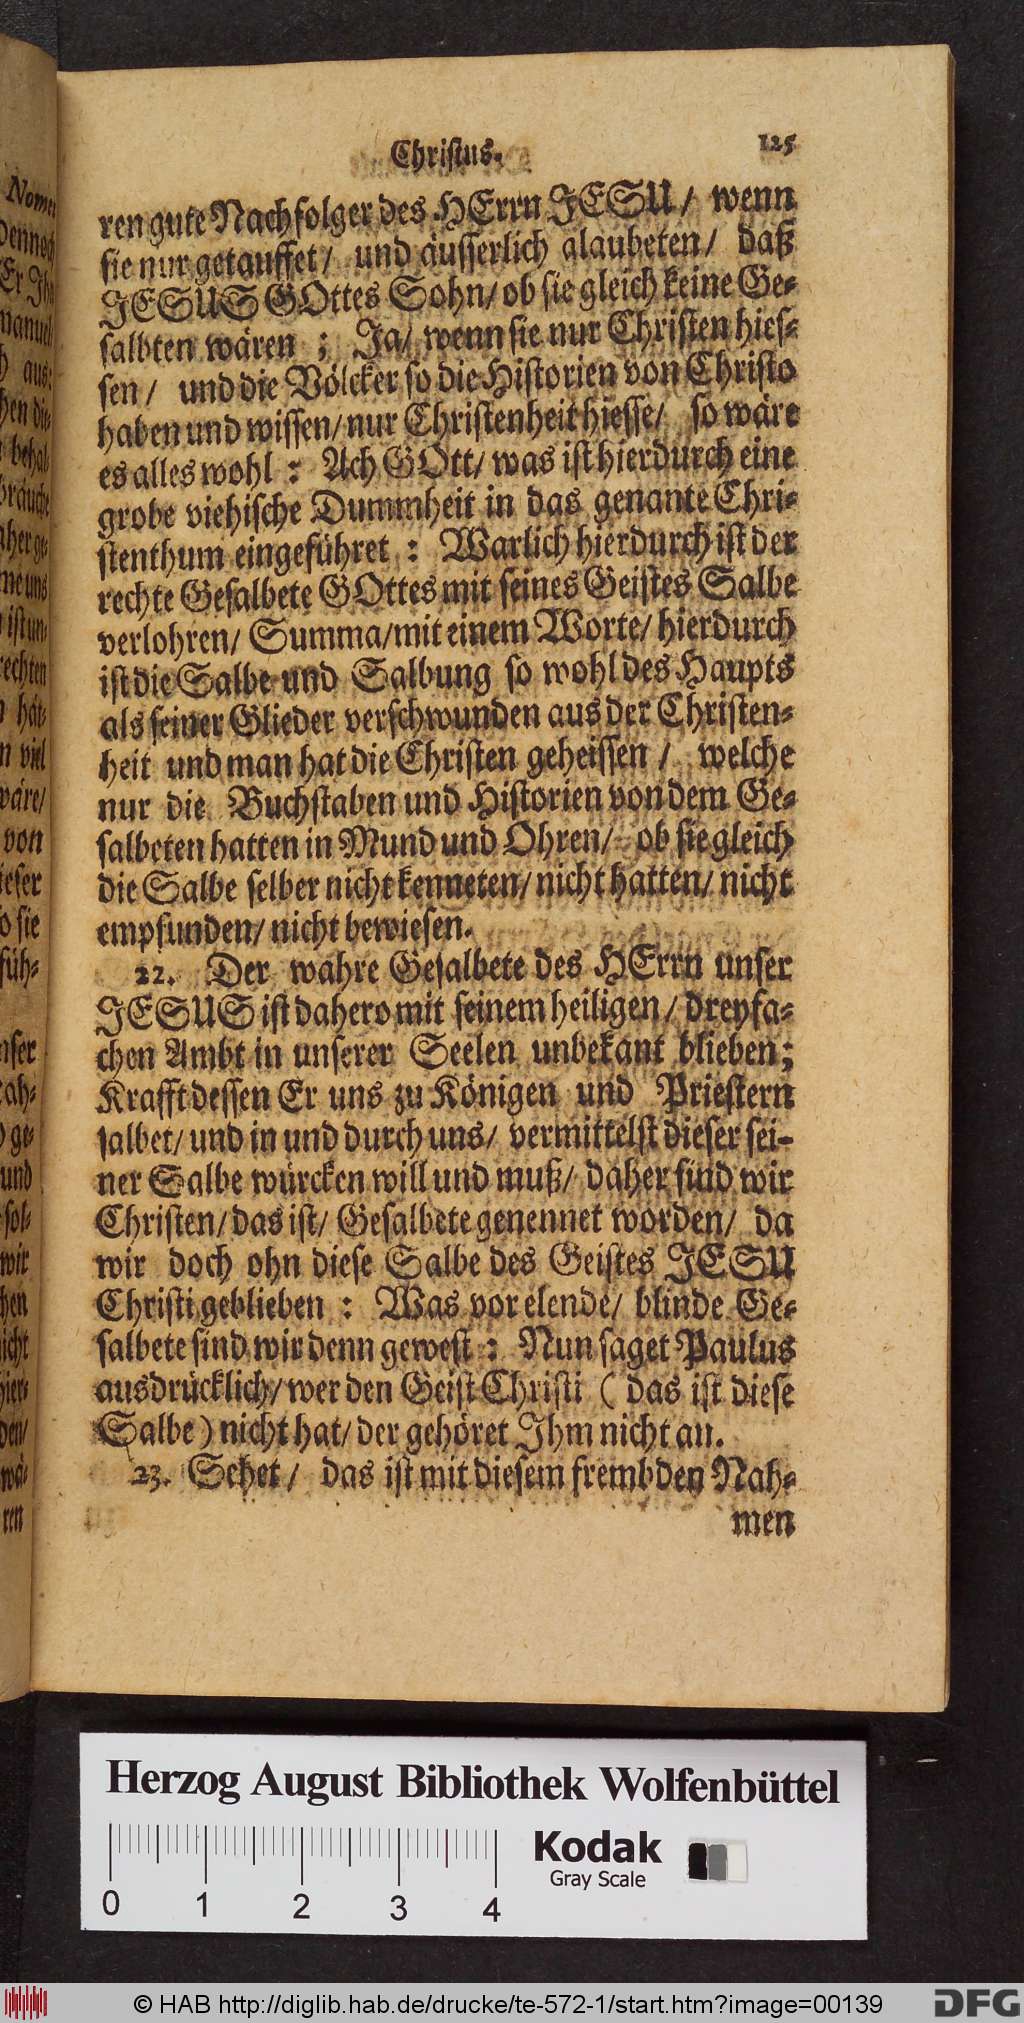 Christus. 125
ren gute Nachfolger des HErrn JESU/ wenn
sie nur getauffet/ und äusserlich glaubeten/ daß
JESUS GOttes Sohn/ ob sie gleich keine Ge-
salbten wären ; Ja/ wenn sie nur Christen hies-
sen/ und die Völcker so die Historien von Christo
haben und wissen/ nur Christenheit hiesse/ so wäre
es alles wohl : Ach GOtt/ was ist hierdurch eine
grobe viehische Dummheit in das genante Chri-
stenthum eingeführet : Warlich hierdurch ist der
rechte Gesalbete GOttes mit seines Geistes Salbe
verlohren/ Summa/ mit einem Worte/ hierdurch
ist die Salbe und Salbung so wohl des Haupts
als seiner Glieder verschwunden aus der Christen-
heit und man hat die Christen geheissen / welche
nur die Buchstaben und Historien von dem Ge-
salbeten hatten in Mund und Ohren/ ob sie gleich
die Salbe selber nicht kenneten/ nicht hatten/ nicht
empfunden/ nicht bewiesen.
22. Der wahre Gesalbete des HErrn unser
JESUS ist dahero mit seinem heiligen/ dreyfa-
chen Ambt in unserer Seelen unbekant blieben;
Krafft dessen Er uns zu Königen und Priestern
salbet/ und in und durch uns/ vermittelst dieser sei-
ner Salbe würcken will und muß/ daher sind wir
Christen/ das ist/ Gesalbete genennet worden/ da
wir doch ohn diese Salbe des Geistes JESU
Christi geblieben : Was vor elende/ blinde Ge-
salbete sind wir denn gewest : Nun saget Paulus
ausdrücklich/ wer den Geist Christi ( das ist diese
Salbe ) nicht hat/ der gehöret Ihm nicht an.
23. Sehet / das ist mit diesem frembden Nah-
men
Herzog August Bibliothek Wolfenbüttel
0 1 2 3 4
Kodak
Gray Scale
© HAB http://diglib.hab.de/drucke/te-572-1/start.htm?image=00139
DFG